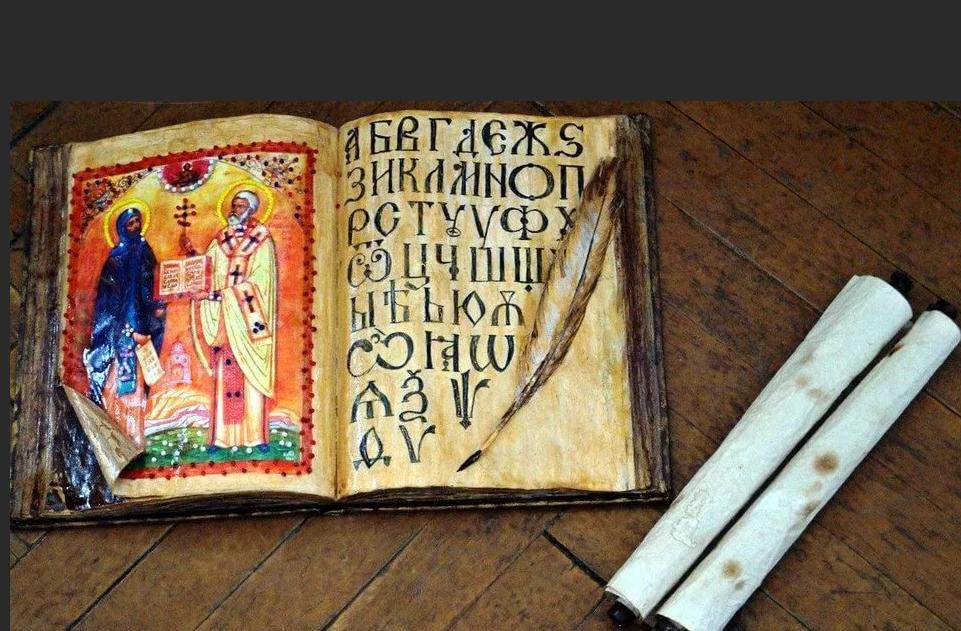 А Б В Г Д Е Ж Ѕ
З И К Л М Н О П
Р С Т Ү У Ф Х
Ѿ Ц Ч Ш Щ
Ы Ѣ Ь Ю Ѫ
Ѽ Ꙗ Ѡ
Ѧ Ѯ Ѱ
Ѳ Ѵ